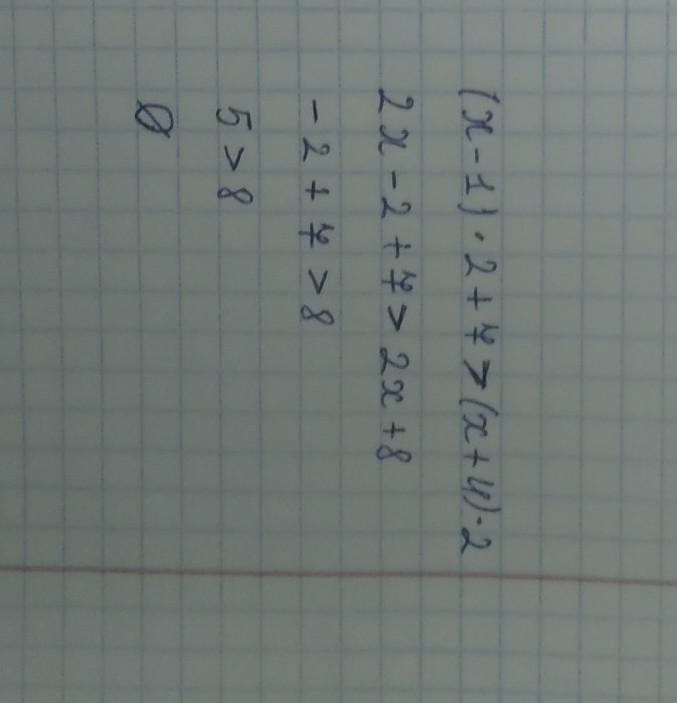 (x-1)·2+7>(x+4)·2
2x-2+7>2x+8
-2+7>8
5>8
∅